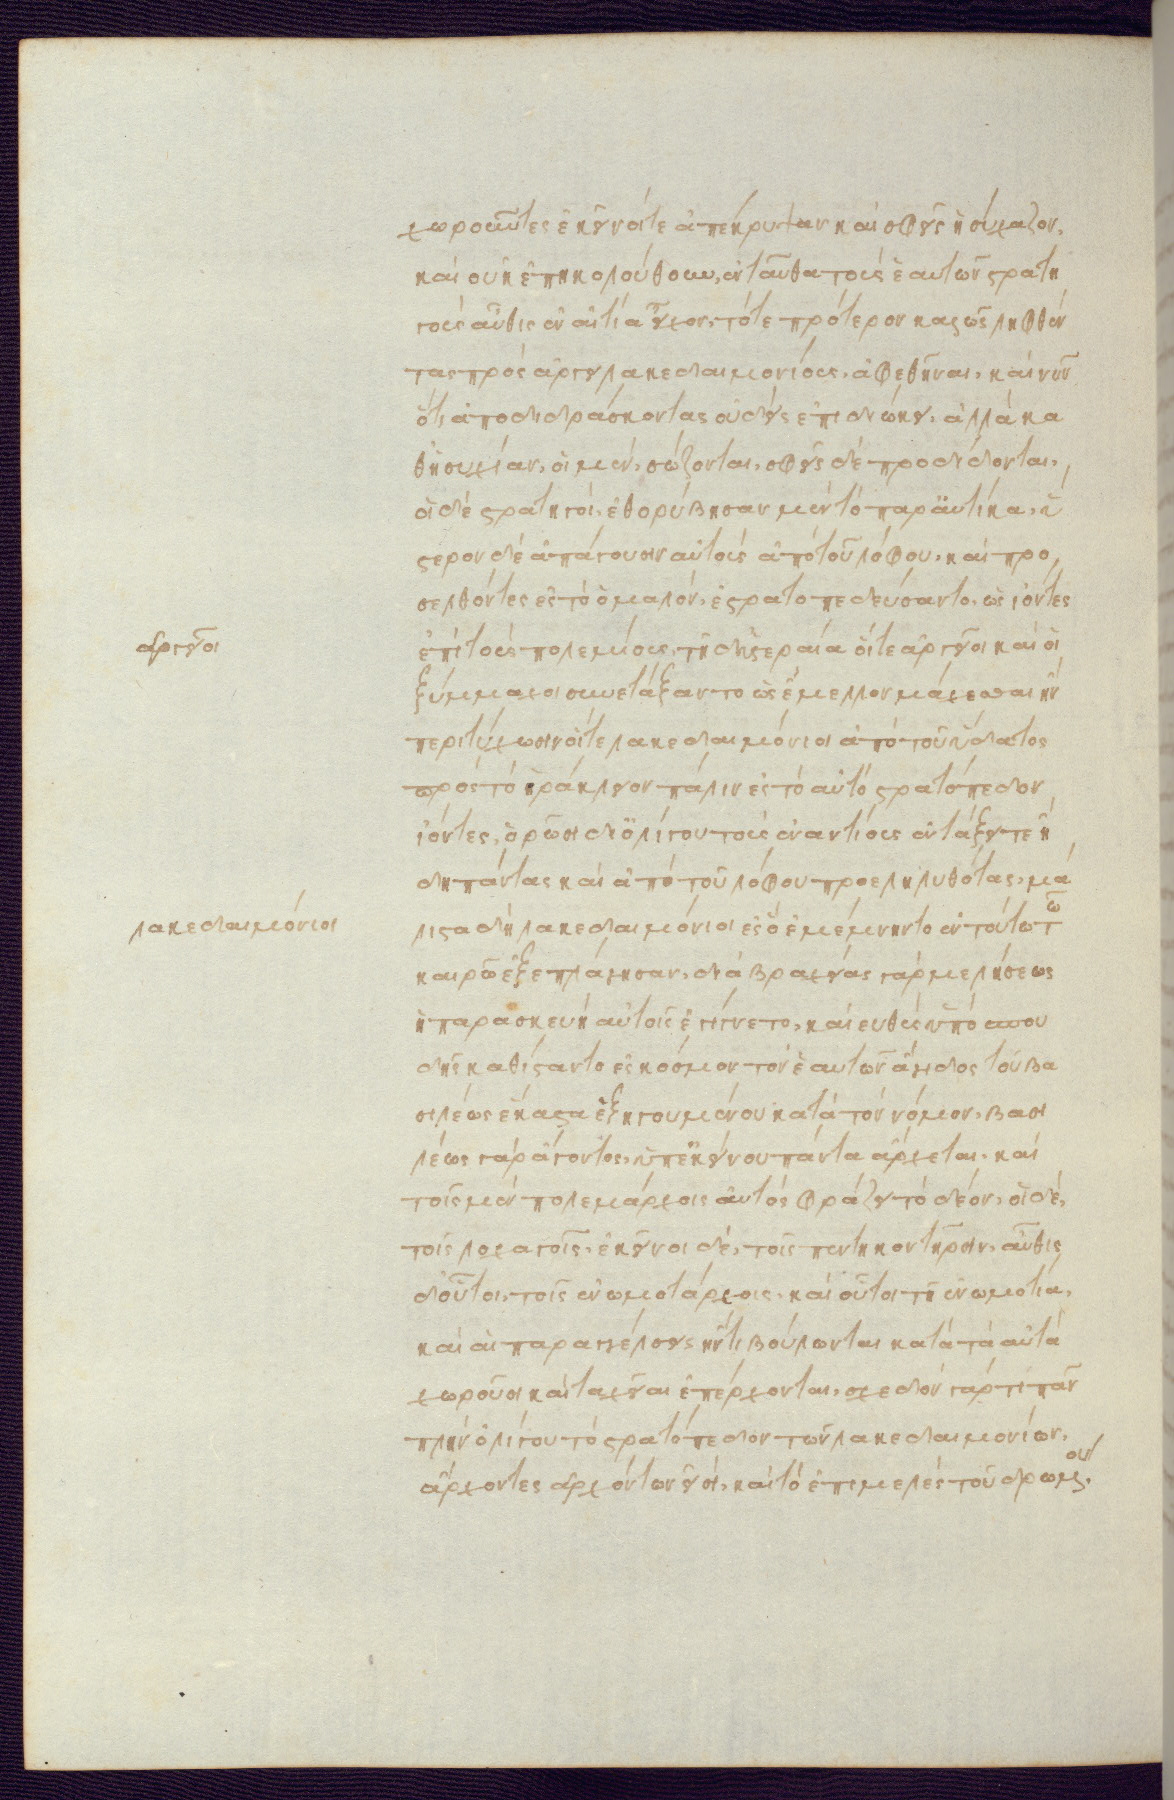 χωροῦντες ἐκεῖνοί τε ἀπέκρυψαν καὶ σφεῖς ἡσύχαζον,
καὶ οὐκ ἐπηκολούθουν, ἐνταῦθα τοὺς ἑαυτῶν στρατη
γοὺς αὖθις ἐν αἰτία εἶχον, τό τε πρότερον καλῶς ληφθέν
τας πρὸς ἄργει λακεδαιμονίους, ἀφεθῆναι, καὶ νῦν
ὅτι ἀποδιδράσκοντας οὐδεὶς ἐπιδιώκει, ἀλλὰ κα
θησυχίαν, οἱ μὲν, σώζονται, σφεῖς δὲ προδίδονται,
οἱ δὲ στρατηγοὶ, ἐθορύβησαν μὲν τὸ παραϋτίκα, ὕ
στερον δὲ ἀπάγουσιν αὐτοὺς ἀπὸ τοῦ λόφου, καὶ προ
σελθόντες ἐς τὸ ὁμαλὸν, ἐστρατοπεδεύσαντο, ὡς ἰόντες
ἀργεῖοι
ἐπὶ τοὺς πολεμίους, τῆ δ' ὑστεραία οἵ τε ἀργεῖοι καὶ οἱ
ξύμμαχοι συνετάξαντο ὡς ἔμελλον μάχεσθαι ἢν
περιτύχωσιν οἵ τε λακεδαιμόνιοι ἀπὸ τοῦ ὕδατος
πρὸς τὸ ἡράκλειον πάλιν ἐς τὸ αὐτὸ στρατόπεδον
ἰόντες, ὁρῶσι δι' ὀλίγου τοὺς ἐναντίους ἐν τάξει τε ἤ
δη πάντας καὶ ἀπὸ τοῦ λόφου προεληλυθότας, μά
λακεδαιμόνιοι
λιστα δὴ λακεδαιμόνιοι ἐς ὃ ἐμέμνηντο ἐν τούτω τῶ
καιρῶ ἐξεπλάγησαν, διὰ βραχείας γὰρ μελήσεως
ἡ παρασκευὴ αὐτοῖς ἐγίγνετο, καὶ ευθὺς ὑπὸ σπου
δῆς καθίσταντο ἐς κόσμον τὸν ἑαυτῶν ἄγιδος τοῦ βα
σιλέως ἕκαστα ἐξηγουμένου κατὰ τὸν νόμον, βασι
λέως γὰρ ἄγοντος, ὑπ' ἐκείνου πάντα ἄρχεται, καὶ
τοῖς μὲν πολεμάρχοις αὐτὸς φράζει τὸ δέον, οἱ δὲ,
τοῖς λοχαγοῖς, ἐκεῖνοι δὲ, τοῖς πεντηκοντῆρσιν, αὖθις
δ' οὗτοι, τοῖς ἐνωμοτάρχοις, καὶ οὗτοι τῆ ἐνωμοτία,
καὶ αἱ παραγγέλσεις ἤν τι βούλωνται κατὰ τὰ αὐτὰ
χωροῦσι καὶ ταχεῖαι ἐπέρχονται, σχεδὸν γάρ τι πᾶν
πλὴν ὀλίγου τὸ στρατόπεδον τῶν λακεδαιμονίων,
ἄρχοντες ἀρχόντων εἰσὶ, καὶ τὸ ἐπιμελὲς τοῦ δρωμένου